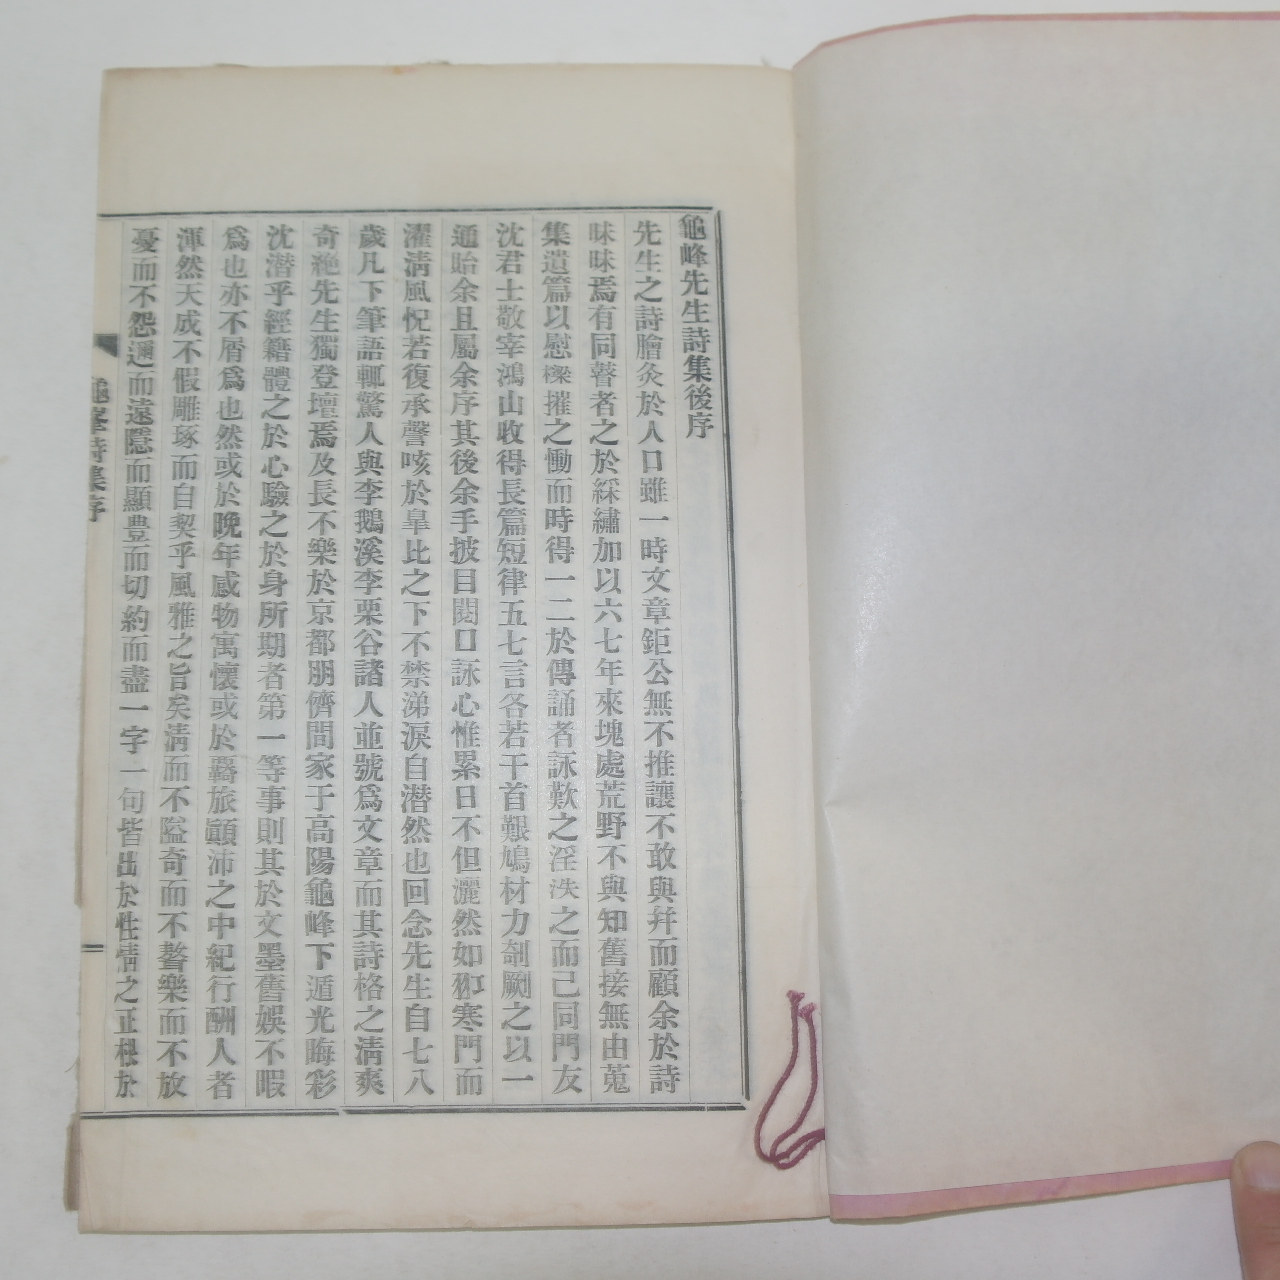 龜峰先生詩集後序
先生之詩膾灸於人口雖一時文章鉅公無不推讓不敢與幷而顧余於詩
昧昧焉有同瞽者之於綵繡加以六七年來塊處荒野不與知舊接無由蒐
集遺篇以慰樑摧之慟而時得一二於傳誦者詠歎之淫泆之而已同門友
沈君士敬宰鴻山收得長篇短律五七言各若干首艱鳩材力剞劂之以一
通貽余且屬余序其後余手披目閱口詠心惟累日不但灑然如寒門而
濯淸風怳若復承謦咳於皐比之下不禁涕淚自潸然也回念先生自七八
歲凡下筆語輒驚人與李鵝溪李栗谷諸人並號爲文章而其詩格之淸爽
奇絶先生獨登壇焉及長不樂於京都朋儕間家于高陽龜峰下遁光晦彩
沈潛乎經籍體之於心驗之於身所期者第一等事則其於文墨舊娛不暇
爲也亦不屑爲也然或於晩年感物寓懷或於羇旅顚沛之中紀行酬人者
渾然天成不假雕琢而自契乎風雅之旨矣淸而不隘奇而不鰲樂而不放
憂而不怨邇而遠隱而顯豊而切約而盡一字一句皆出於性情之正根於
龜峯詩集序